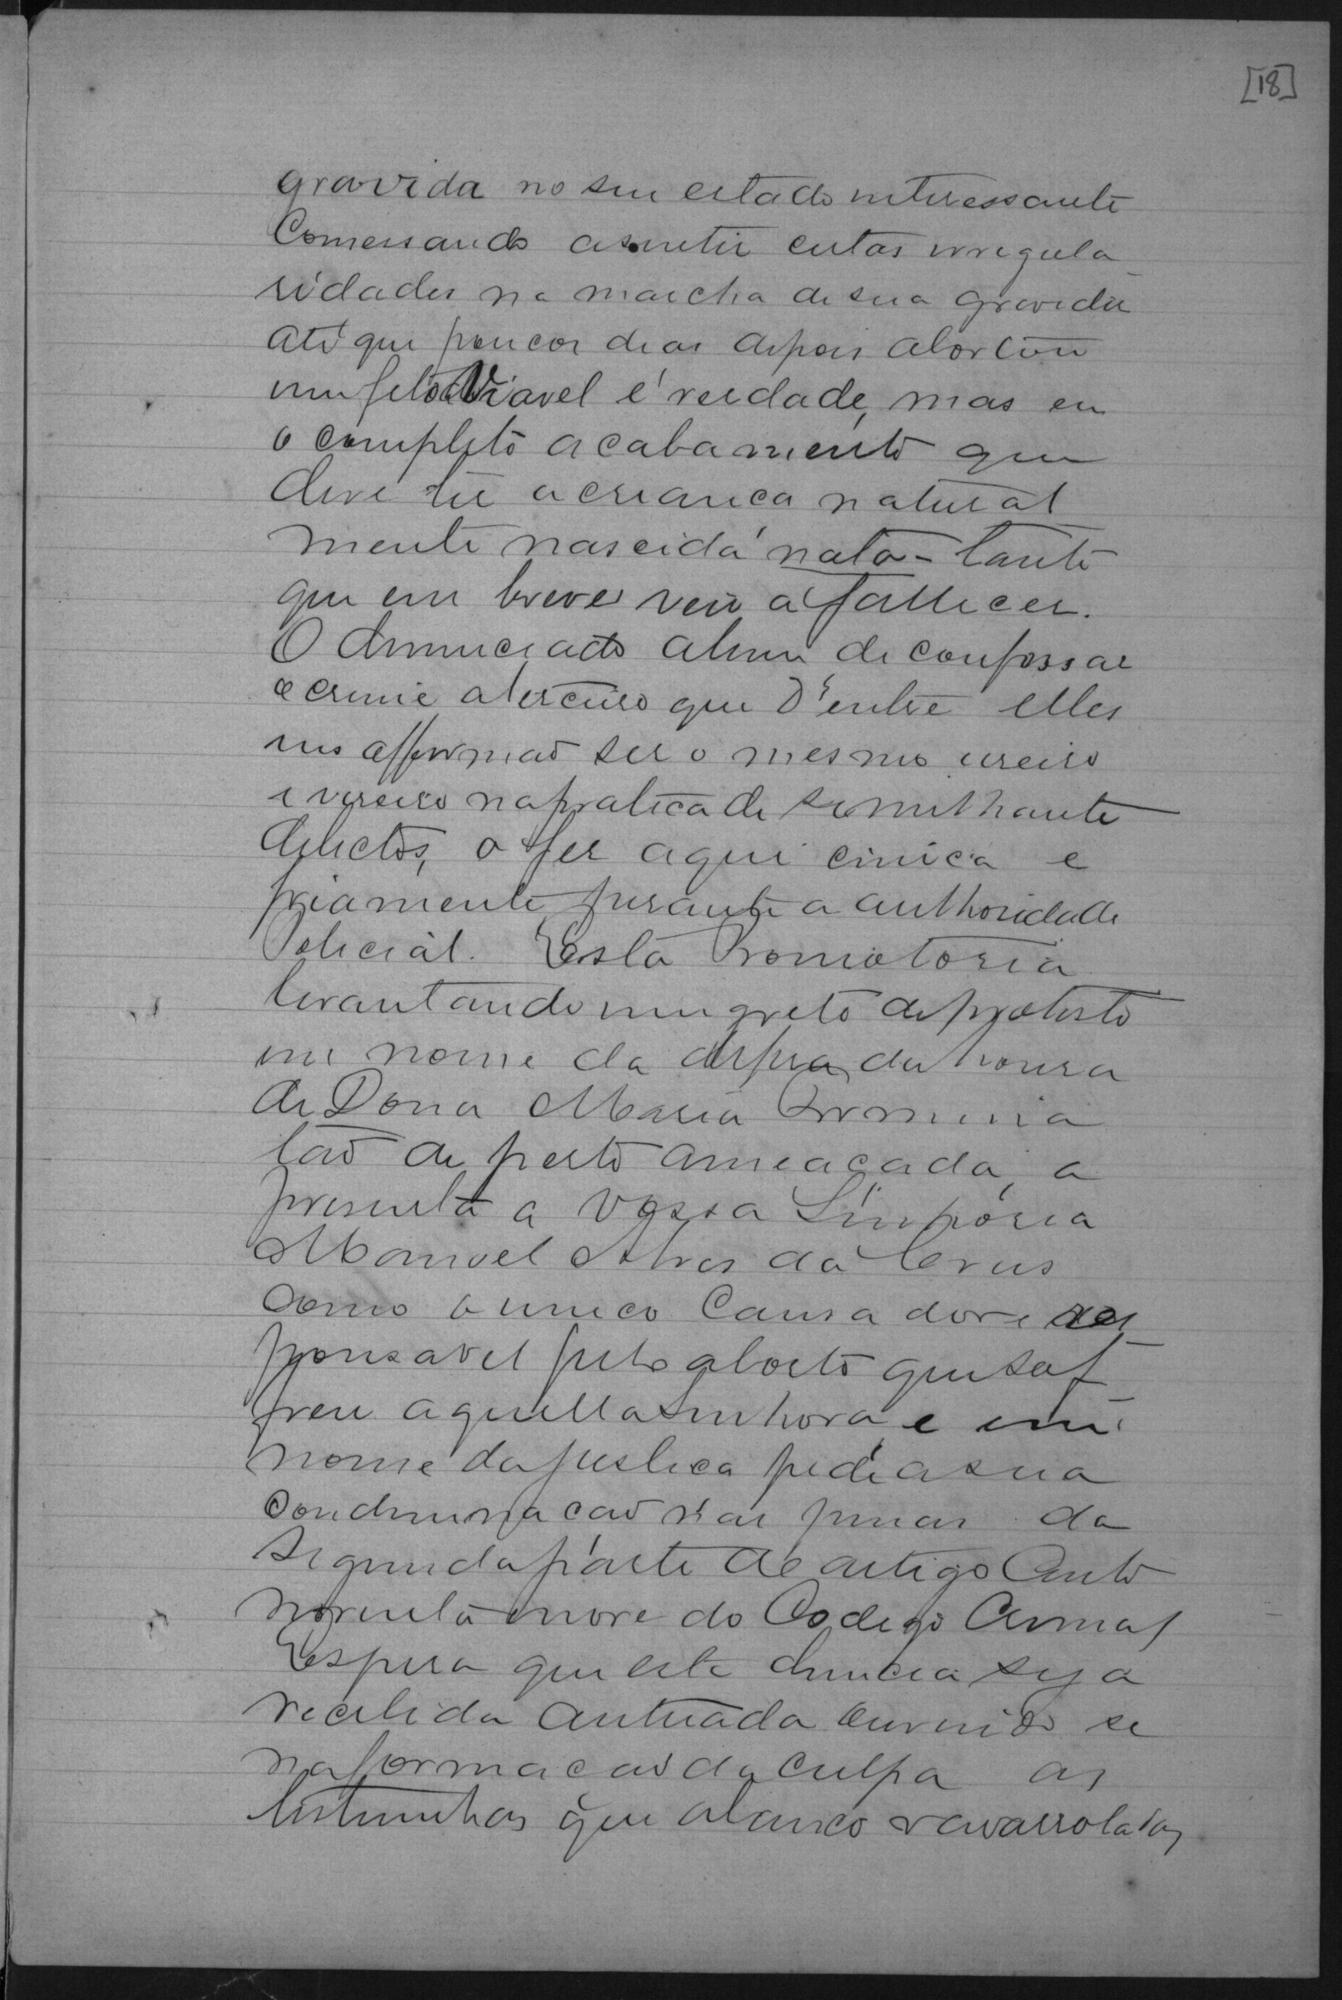 [18]
gravida no seu estado interessante
Comessando a sentir certas irregula
ridades na marcha de sua gravidez
até que poucos dias depois abortou
um feto Viavel é verdade, mas
o completo acabamento que
deve ter a criança natural
mente nascida nato - tanto
que em breve veio a fallecer.
O denunciado alem de confessar
o crime a terceiro que d'entre elles
nos affirmaõ ser o mesmo
na pratica de similhante
delictos, o fez aqui cinica e
friamente perante a authoridade
Policial. Esta Promotoria
levantando um grito de protesto
em nome da defesa da honra
de Dona Maria
taõ de perto ameaçada, a
presenta a Vossa
Manoel Alves da Crus
como o unico Causador e res
ponsavel pelo aborto que sof
freu aquella Senhora, e em
nome da justiça pede a sua
condemnaçaõ nas penas da
segunda parte do artigo Cento
noventa nove do Codigo Criminal
Espera que esta denuncia seja
recebida autuada ouvindo se
na formaçaõ da culpa as
testimunhas que abaixo vaõ arroladas